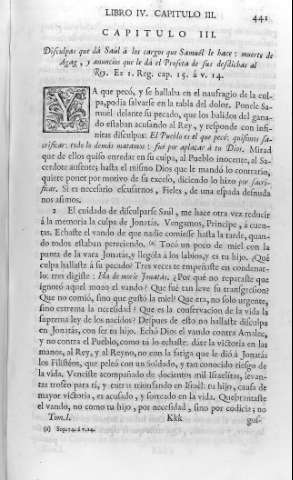 LIBRO IV. CAPITULO III. 441
CAPITULO III.
Disculpas que dá Saúl à los cargos que Samuél le hace: muerte de
Agag, y anuncios que le dá el Profeta de sus desdichas al
Rey. Ex 1. Reg. cap. 15. à v. 14.
YA que pecó, y se hallaba en el naufragio de la cul-
pa, podia salvarse en la tabla del dolor. Ponele Sa-
muel delante su pecado, que los balidos del gana-
do estaban acusando al Rey, y responde con infi-
nitas disculpas: El Pueblo es el que pecó; quisimos sa-
crificar: todo lo demás matamos: fue por aplacar à tu Dios. Mirad
que de ellos quiso enredar en su culpa, al Pueblo inocente, al Sa-
cerdote ausente; hasta el mismo Dios que le mandó lo contrario,
quiere poner por motivo de su exceso, diciendo lo hizo por sacri-
ficar. Si es necesario escusarnos, Fieles, de una espada desnuda
nos asimos.
2 El cuidado de disculparse Saúl, me hace otra vez reducir
à la memoria la culpa de Jonatás. Vengamos, Principe, à cuen-
tas. Echaste el vando de que nadie comiese hasta la tarde, quan-
do todos estaban pereciendo. (a) Tocó un poco de miel con la
punta de la vara Jonatás, y llególa à los labios, y es tu hijo. ¿Qué
culpa hallaste à su pecado? Tres veces te empeñaste en condenar-
lo: tres dixiste: Ha de morir Jonatás. ¿Por qué no reparaste que
ignoró aquel mozo el vando? ¿Que fue tan leve su transgresion?
Que no comió, sino que gustó la miel? Que era, no solo urgente,
sino estrema la necesidad? Que es la conservacion de la vida la
suprema ley de los nacidos? Despues de esto no hallaste disculpa
en Jonatás, con ser tu hijo. Echó Dios el vando contra Amaléc,
y no contra el Pueblo, como tú lo echaste: dáte la victoria en las
manos, al Rey, y al Reyno, no con la fatiga que le dió à Jonatás
los Filistéos, que peleó con un soldado, y tan conocido riesgo de
la vida. Venciste acompañado de docientos mil Israelitas, levan-
tas troféo para tí, y entras triunfando en Israél: tu hijo, causa de
mayor victoria, es acusado, y sorteado en la vida. Quebrantaste
el vando, no como tu hijo, por necesidad, sino por codicia; no
Tom. I. Kkk gus-
(a) Sup. 14. à v. 24.